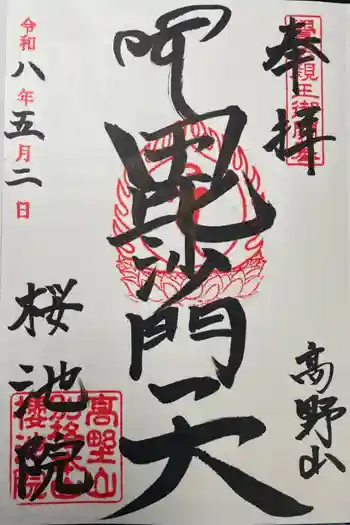 奉拝
高野山
毘沙門天
令和八年五月二日
桜池院
高野山
櫻池院